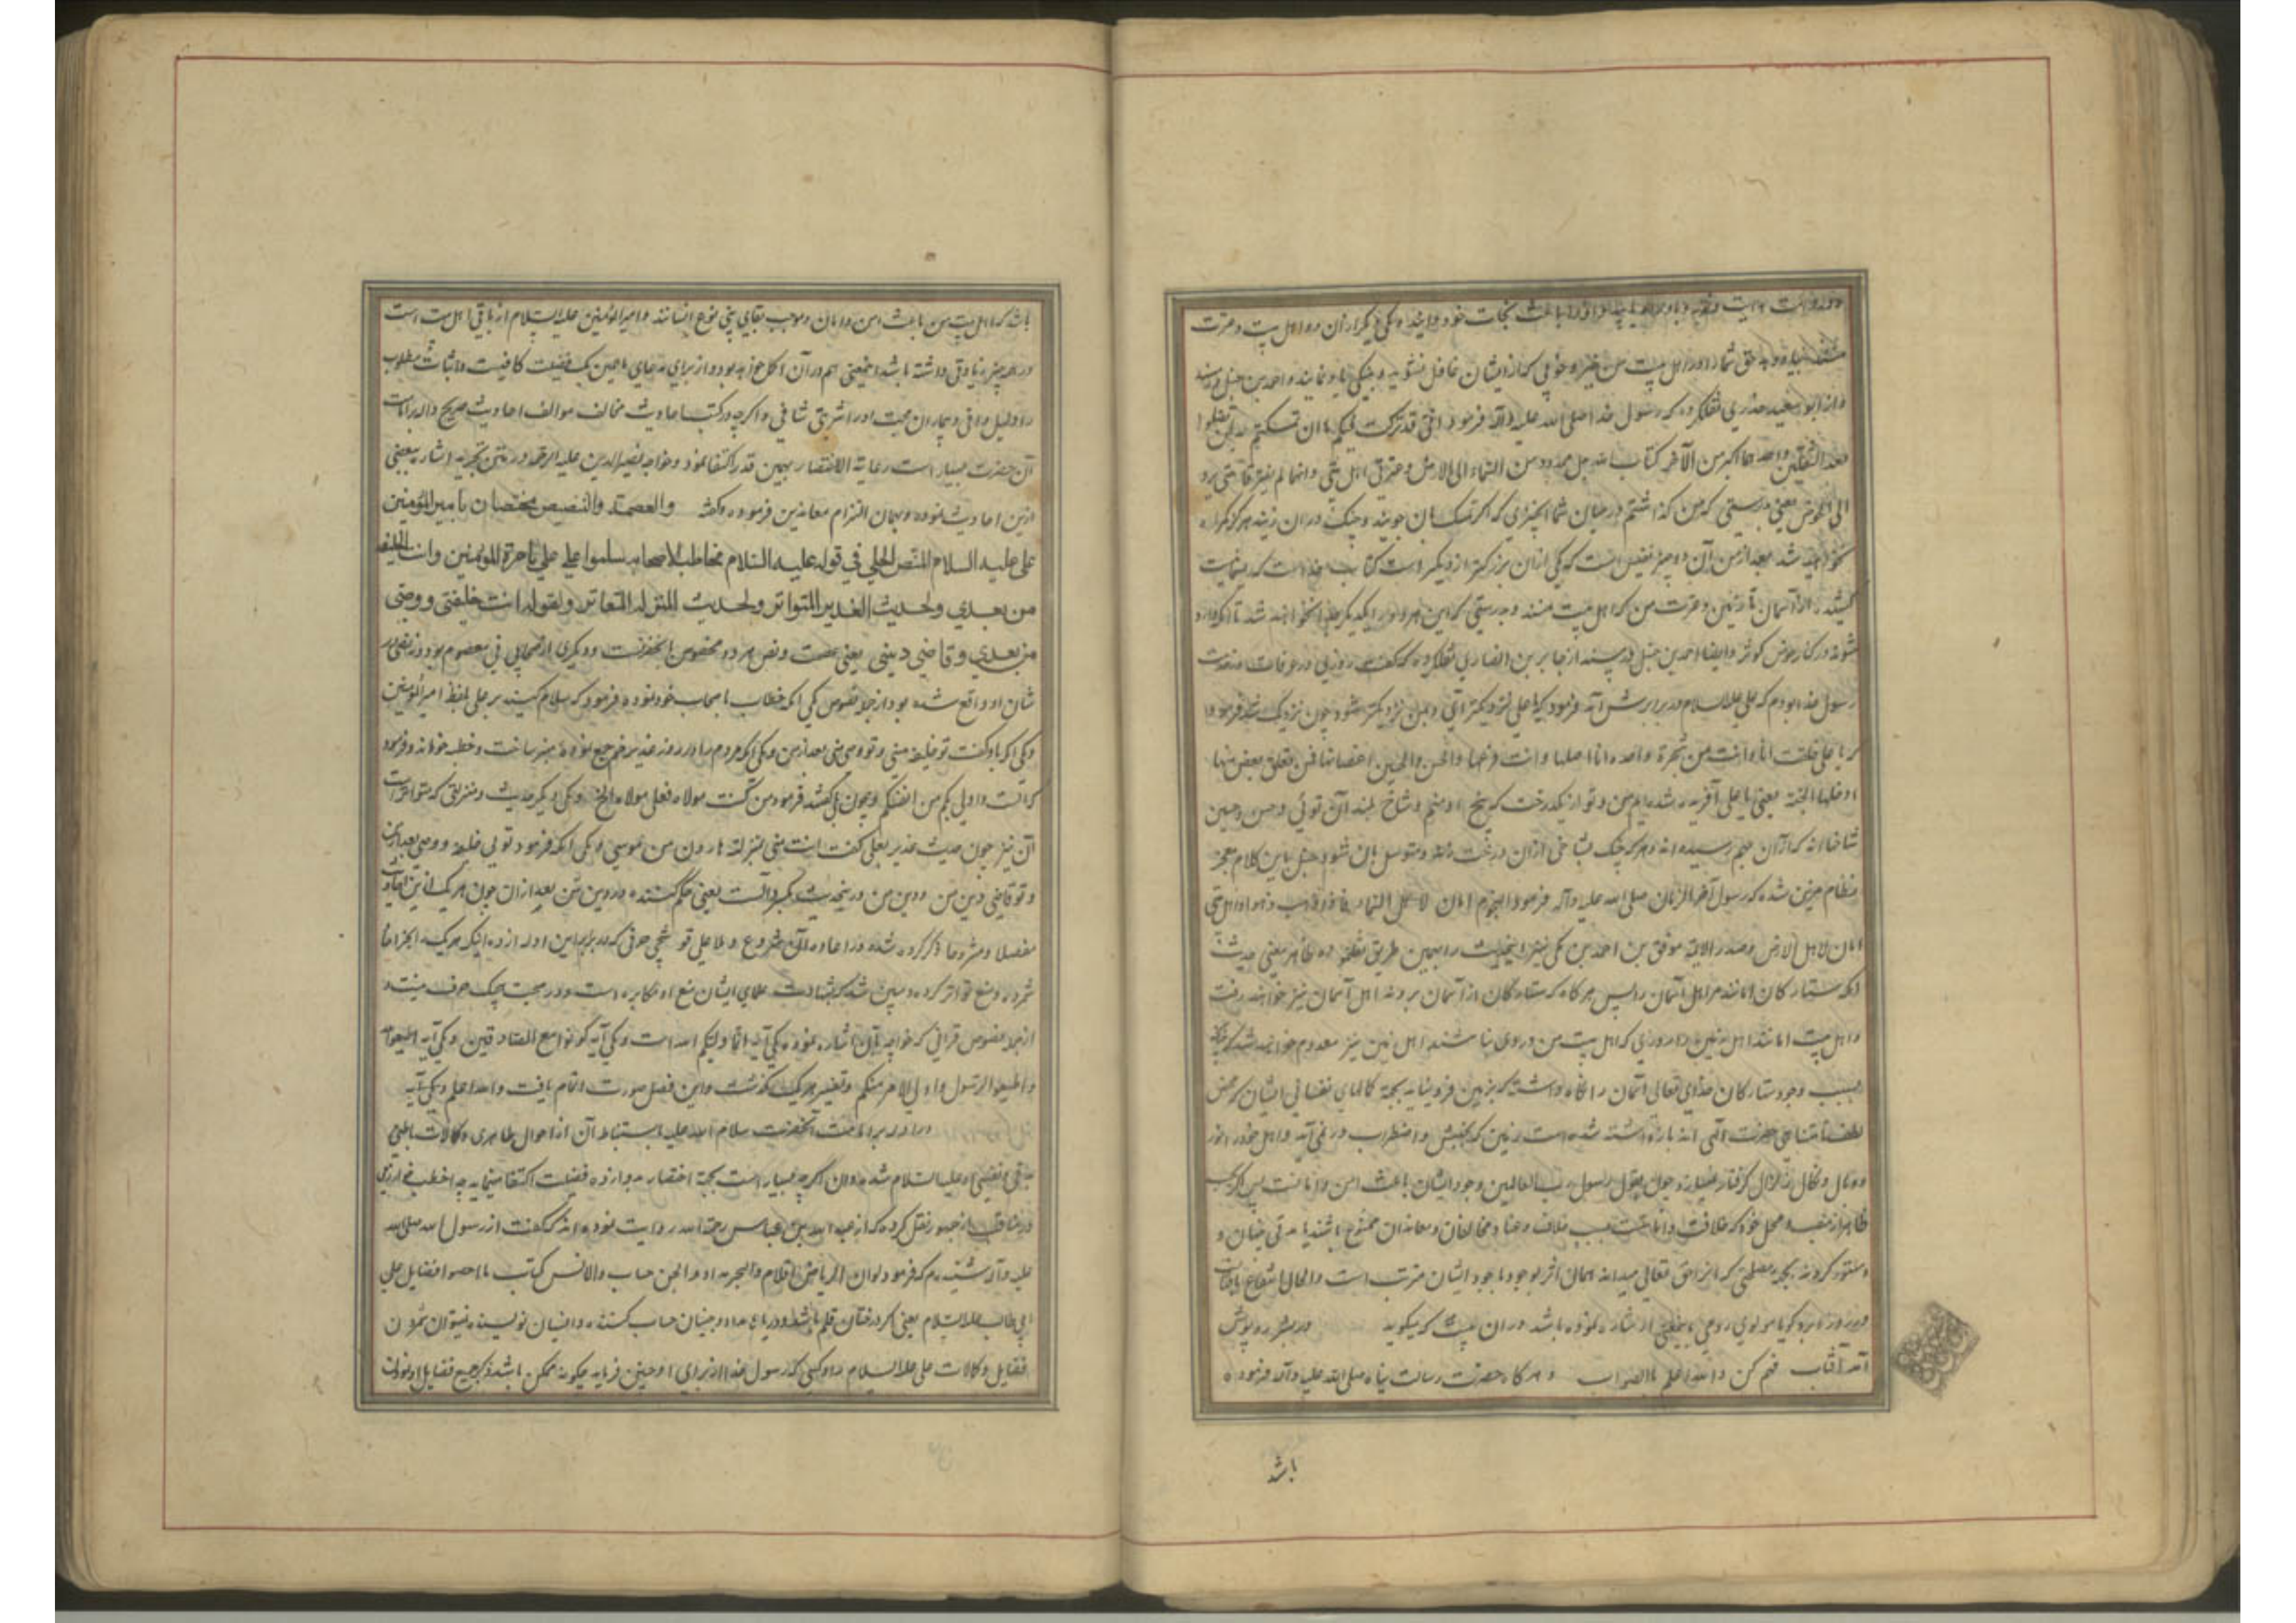 نجات خود دانید و یکی دیگر از آن دو اهل بیت و عترت
حق شما را در اهل بیت من خیر و خوبی که از ایشان غافل نشوید و نیکی با و نمایند و احمد بن حنبل در مسند
و از ابو سعید خدری نقل کرده که رسول خدا صلی الله علیه وآله فرمود انی قد ترکت فیکم ما ان تمسکتم به لن تضلوا
بعد الثقلین واحدهما اکبر من الآخر کتاب الله حبل ممدود من السماء الی الارض و عترتی اهل بیتی وانهما لم یفترقا حتی یردا
الی الحوض یعنی بدرستی که من گذاشتم در میان شما چیزی که اگر تمسک بآن جویید و چنگ در آن زنید هرگز گمراه
نخواهید شد بعد از من آن دو چیز نفیس است که یکی از آن بزرگتر از دیگر است کتاب خداست که ریسمانیست
کشیده از آسمان تا زمین و عترت من که اهل بیت منند و بدرستی که این هر دو از یکدیگر جدا نخواهند شد تا آنکه وارد
شوند در کنار حوض کوثر و ایضا احمد بن حنبل در مسند از جابر بن انصاری نقل کرده که گفت روزی در عرفات در خدمت
رسول خدا بودم که علی علیه السلام در برابرش آمد فرمود که یا علی نزدیکتر آی و بمن نزدیکتر شو چون نزدیک شد فرمود
که یا علی خلقت انا وانت من شجرة واحدة انا اصلها وانت فرعها والحسن والحسین اغصانها فمن تعلق بغصن منها
ادخلها الجنة یعنی یا علی آفریده شده ایم من و تو از یک درخت که بیخ او منم و شاخ بلند آن توئی و حسن و حسین
شاخها اند که از آن بهم رسیده اند و هر که چنگ بشاخی از آن درخت زند و متوسل بآن شود و جبل باین کلام معجز
نظام مزین شده که رسول آخر الزمان صلی الله علیه وآله فرمود النجوم امان لاهل السماء فاذا ذهبت ذهبوا واهل بیتی
امان لاهل الارض و صدر الایمه موفق بن احمد بن مکی نیز اینحدیث را بهمین طریق نقلنموده ظاهر معنی حدیث
آنکه ستارگان امانند مر اهل آسمان را پس هر گاه که ستارگان از آسمان بروند اهل آسمان نیز خواهند رفت
و اهل بیت امانند اهل زمین را روزی که اهل بیت من در وی نباشند اهل زمین نیز معدوم خواهند شد
بسبب وجود ستارگان خدای تعالی آسمان را نگاه داشته که بزمین فرو نیاید بجهة کمالهای نفسانی ایشان که محض
لطف نامتناهی حضرت الهی اند باز داشته شده است زمین که بجنبش و اضطراب در نمی آید و اهل خود را در
وبال و نکال زلزال گرفتار نمیسازد چون بقول رسول رب العالمین وجود ایشان باعث امن و امانست پس اگر بحسب
ظاهر از منصب و محل خود که خلافت و امامتست بسبب خلاف و عناد مخالفان و معاندان ممنوع باشند یا مدتی پنهان و
مستور گردند بجهة مصلحتی که آنرا حق تعالی میداند همان اثر بوجود باجود ایشان مترتب است و الحال انتفاع بآفتاب
در روز ابر گویا مولوی رومی باینمعنی اشاره نموده باشد در آن بیت که میگوید در بشر روپوش
آمد آفتاب فهم کن والله اعلم بالصواب و هر گاه حضرت رسالت پناه صلی الله علیه وآله فرموده
باشد
باشد که اهل بیت من باعث امن و امان و موجب بقای بنی نوع انسانند و امیرالمؤمنین علیه السلام از باقی اهل بیت است
در هر چیز زیادتی داشته باشد اینمعنی هم در آن اکمل خواهد بود و از برای مدعای ما همین یک فضیلت کافیست و اثبات مطلوب
را دلیل وافی و بیماران محبت او را شربتی شافی و اگر چه در کتب احادیث مخالف موالف احادیث صریح داله بر امامت
آن حضرت بسیار است رعایة الاختصار بهمین قدر اکتفا نمود و خواجه نصیر الدین علیه الرحمه در متن تجرید اشاره ببعضی
ازین احادیث نموده و بهمان التزام معاندین فرموده و گفته والعصمة والنص مختصان بامیر المؤمنین
علی علیه السلام للنص الجلی فی قوله علیه السلام مخاطبا لاصحابه سلموا علی علی بامرة المؤمنین وانت الخلیفة
من بعدی ولحدیث الغدیر المتواتر ولحدیث المنزلة المتواتر ولقوله انت خلیفتی ووصی
من بعدی وقاضی دینی یعنی عصمت و نص هر دو مخصوص بآنحضرت و دیگری از صحابی نی معصوم بود و نه نص در
شان او واقع شده بود از جمله نصوص یکی آنکه خطاب باصحاب خود نموده فرمود که سلام کنید بر علی بلفظ امیر المؤمنین
و یکی آنکه باو گفت تو خلیفه منی و تو وصی منی بعد از من و یکی آنکه مردم را در روز غدیر خم جمع نموده منبر ساخت و خطبه خواند و فرمود
که الست اولی بکم من انفسکم و چون بلی گفتند فرمود من کنت مولاه فعلی مولاه الخ و یکی دیگر حدیث منزلتی که متواتر است
آن نیز چون حدیث غدیر بعلی گفت انت منی بمنزلة هارون من موسی و یکی آنکه فرمود تویی خلیفه و وصی بعد از من
و تو قاضی دین من و دین من درینحدیث بکسر دالست یعنی حکم کننده در دین من بعد از آن چون هر یک ازین احادیث
مفصلا و مشروحا ذکر کرده شده در اعاده آن شروع و ملا علی قوشچی حرفی که در برابر این ادله زده اینکه هر یک را خبر آحاد
شمرده و منع تواتر کرده و مبین شد که بشهادت علمای ایشان منع او مکابره است و در صحت هیچیک حرف نیست و
از جمله نصوص قرآنی که خواجه بآن اشاره نموده یکی آیه انما ولیکم الله است و یکی آیه کونوا مع الصادقین و یکی آیه اطیعوا الله
واطیعوا الرسول واولی الامر منکم و تفسیر هر یک گذشت و این فصل صورت اتمام یافت والله اعلم و یکی آیه
در ادله بر امامت آنحضرت سلام الله علیه استنباط آن از احوال ظاهری و کمالات باطنی
علیه السلام شده و آن اگر چه بسیار است بجهة اختصار بدوازده فضیلت اکتفا مینماید چه اخطب خوارزمی
در مناقب از جمهور نقل کرده که از عبد الله بن عباس رحمة الله روایت نموده اند که گفت از رسول الله صلی الله
علیه وآله شنیدم که فرمود لو ان الریاض اقلام والبحر مداد والجن حساب والانس کتاب ما احصوا فضایل علی بن
ابی طالب علیه السلام یعنی اگر درختان قلم باشند و دریاها مداد و جنیان حساب کننده و انسان نویسنده نمیتوان شمردن
فضایل و کمالات علی علیه السلام را و کسی که رسول خدا از برای او چنین فرماید چگونه ممکن باشد ذکر جمیع فضایل او نمودن